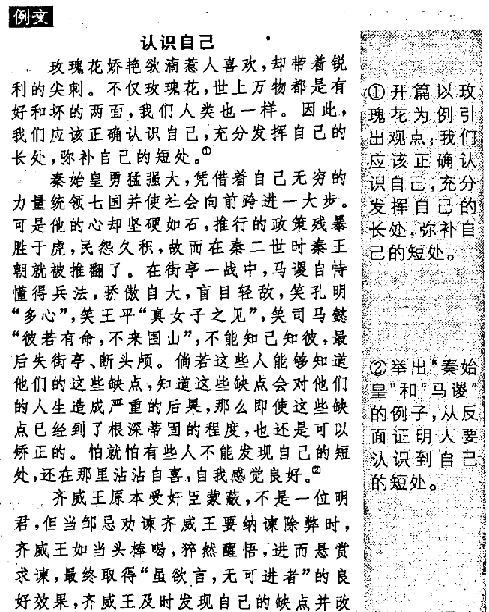 例文
认识自己
玫瑰花娇艳欲滴惹人喜欢，却带着锐
利的尖刺。不仅玫瑰花，世上万物都是有
好和坏的两面，我们人类也一样。因此，
我们应该正确认识自己，充分发挥自己的
长处，弥补自己的短处。①
秦始皇勇猛强大，凭借着自己无穷的
力量统领七国并使社会向前跨进一大步。
可是他的心却坚硬如石，推行的政策残暴
胜于虎，民怨久积，故而在秦二世时秦王
朝就被推翻了。在街亭一战中，马谡自恃
懂得兵法，骄傲自大，盲目轻敌，笑孔明
“多心”，笑王平“真女子之见”，笑司马懿
“彼若有命，不来围山”，不能知己知彼，最
后失街亭、断头颅。倘若这些人能够知道
他们的这些缺点，知道这些缺点会对他们
的人生造成严重的后果，那么即使这些缺
点已经到了根深蒂固的程度，也还是可以
矫正的。怕就怕有些人不能发现自己的短
处，还在那里沾沾自喜，自我感觉良好。②
齐威王原本受奸臣蒙蔽，不是一位明
君，但当邹忌劝谏齐威王要纳谏除弊时，
齐威王如当头棒喝，猝然醒悟，进而悬赏
求谏，最终取得“虽欲言，无可进者”的良
好效果，齐威王及时发现自己的缺点并改
①开篇以玫
瑰花为例引
出观点：我们
应该正确认
识自己，充分
发挥自己的
长处，弥补自
己的短处。
②举出“秦始
皇”和“马谡”
的例子，从反
面证明人要
认识到自己
的短处。